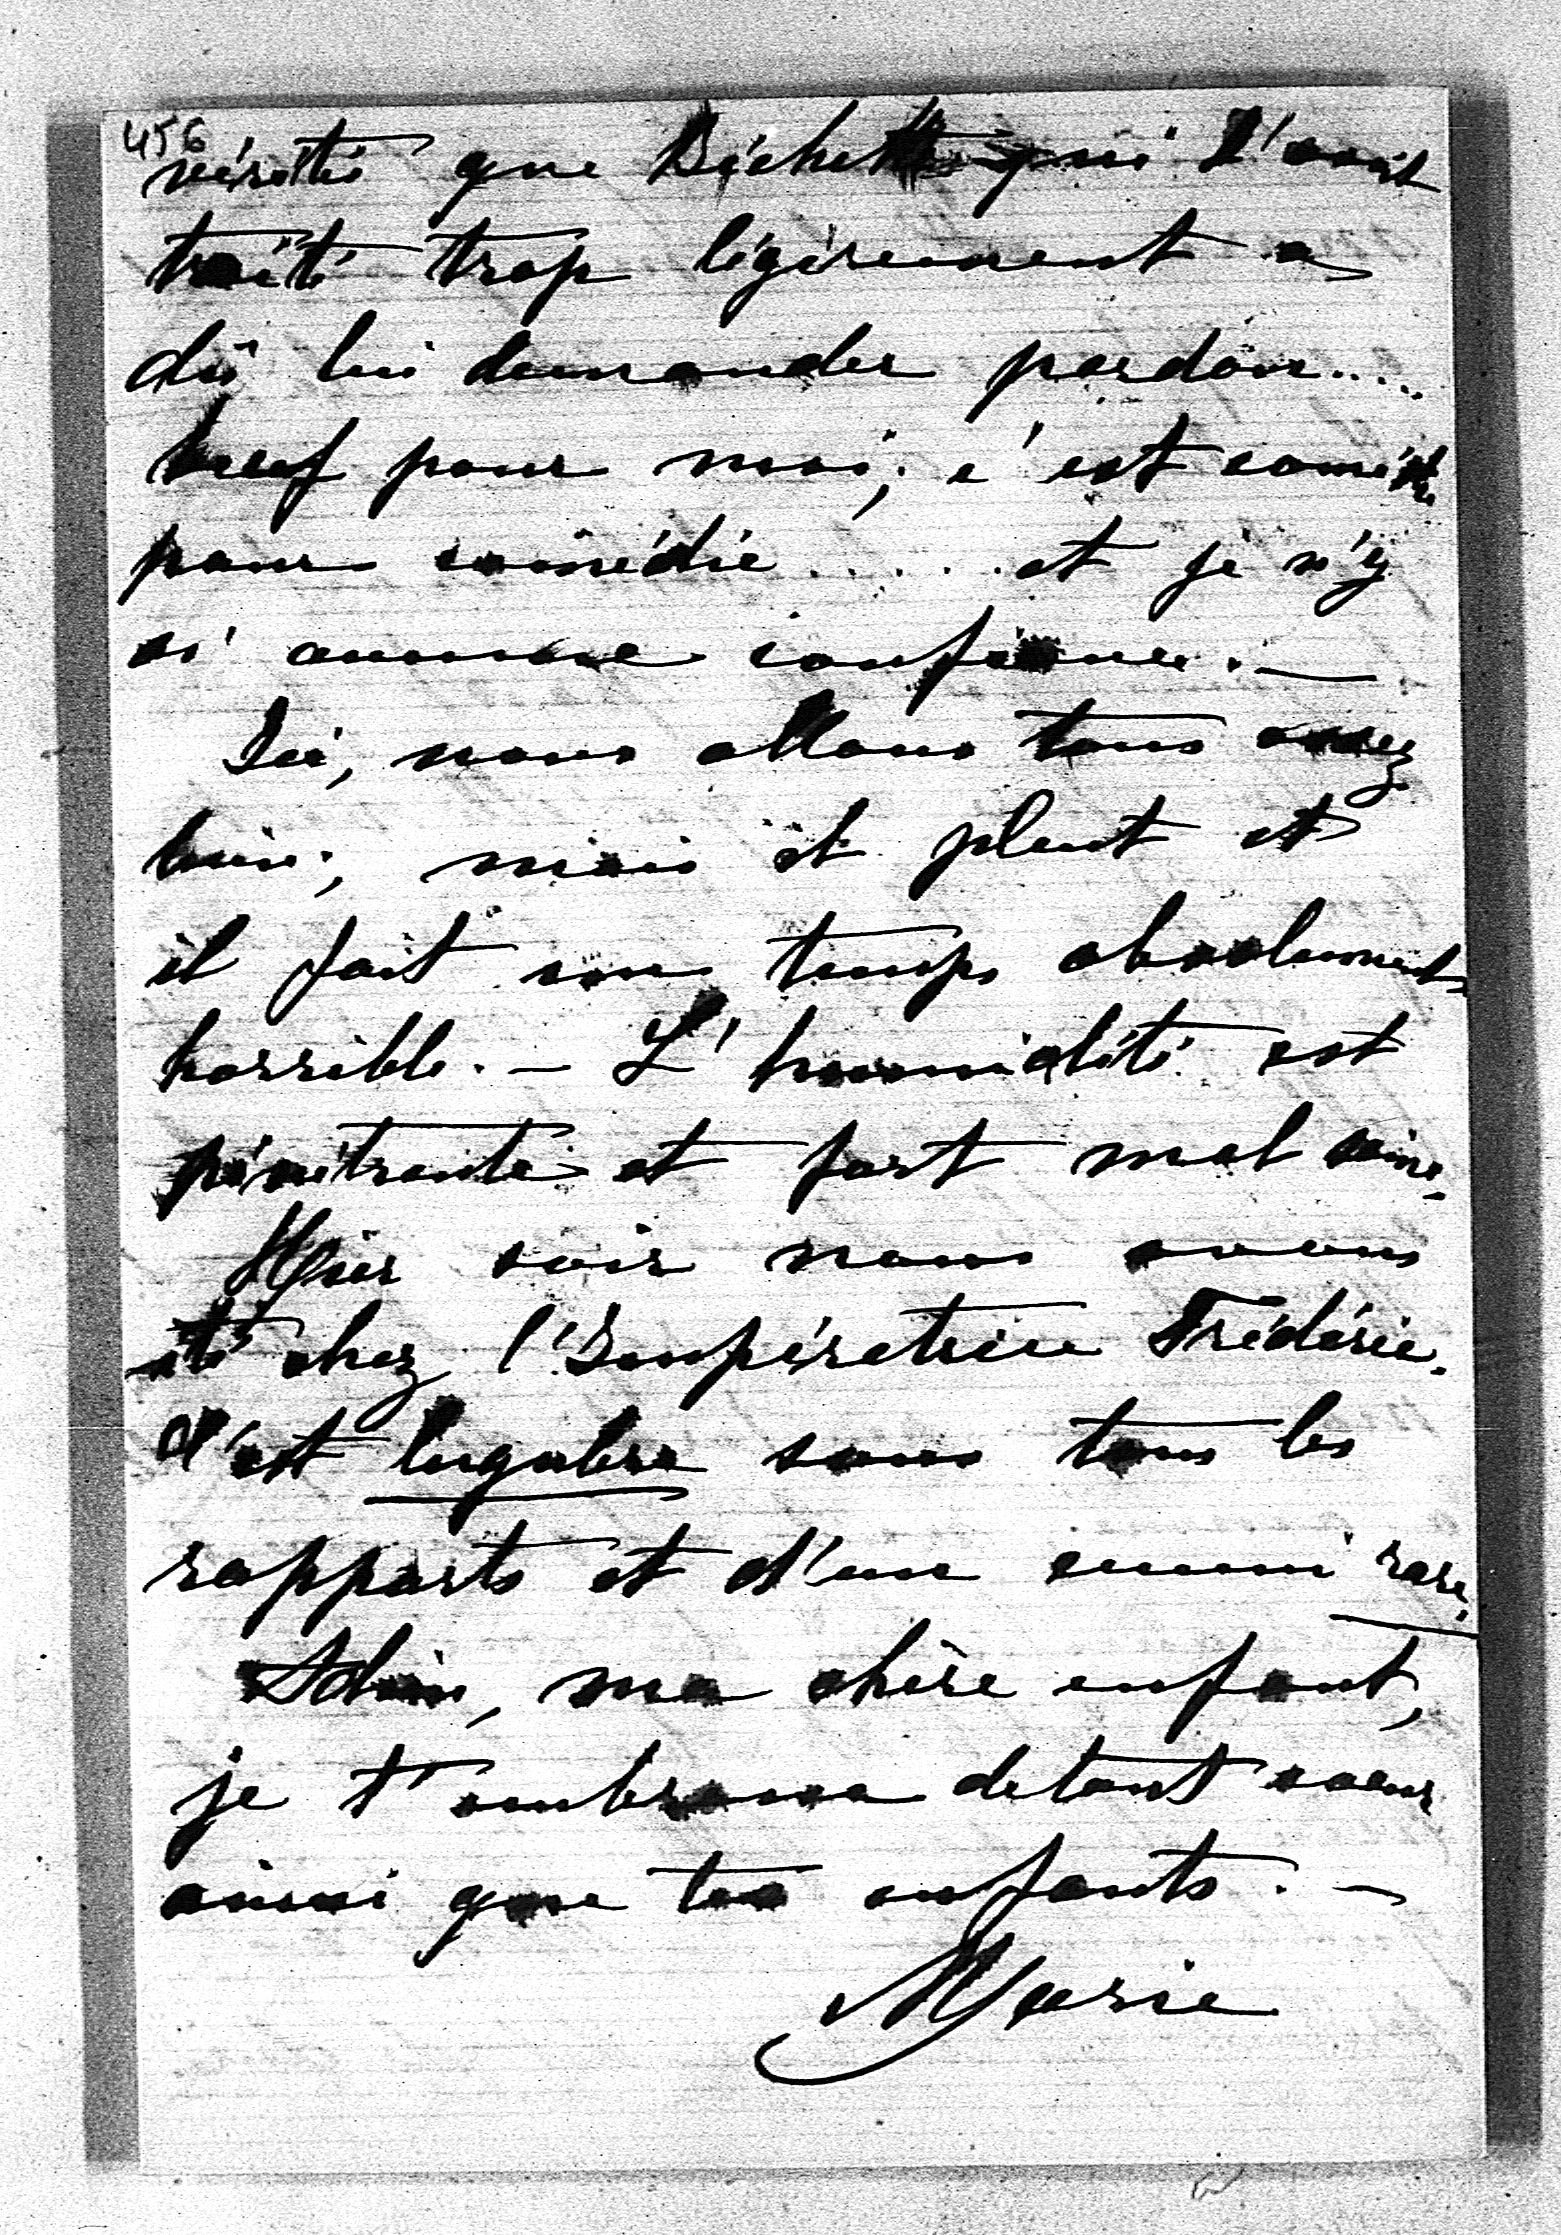 456
vérité que Béchet qui l'avait
traité trop légèrement a
dû lui demander pardon.....
bref pour moi; c'est comédie
pour comédie...... et je n'y
ai aucune confiance. —
Ici, nous allons tous assez
bien; mais il pleut et
il fait un temps absolument
horrible. — L'humidité est
pénétrante et fort mal saine.
Hier soir nous avons
été chez l'Impératrice Frédéric.
C'est lugubre sous tous les
rapports et d'un ennui rare.
Adieu, ma chère enfant,
je t'embrasse de tout cœur
ainsi que tes enfants. —
Marie